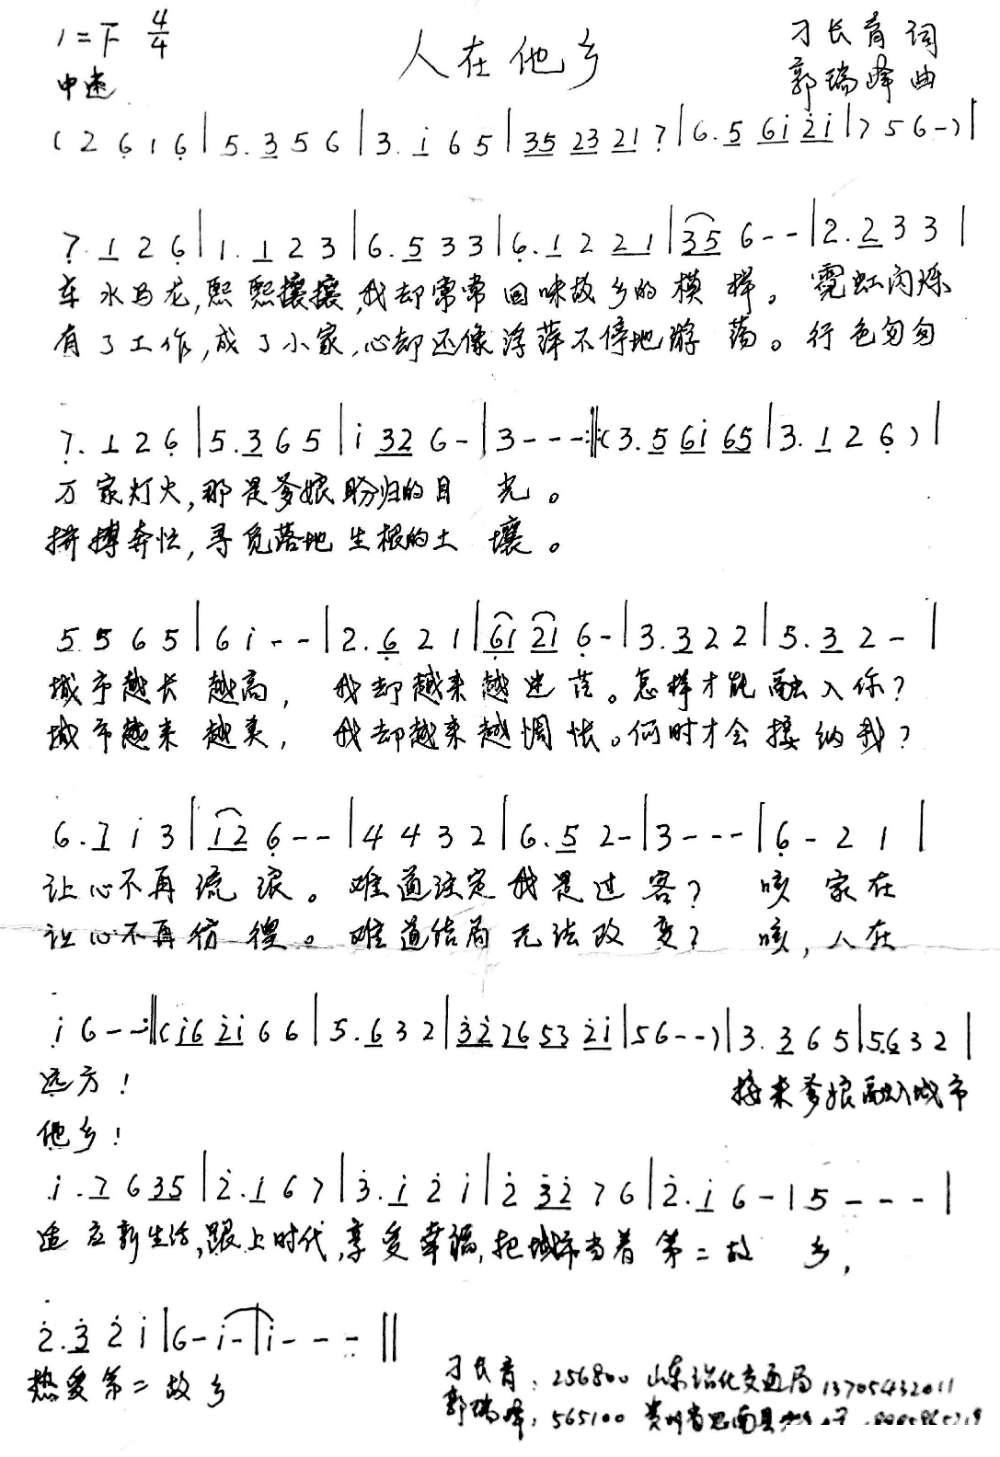 1=F 4/4 人在他乡 刁长育 词
中速 郭瑞峰 曲
( 2 6̣ 1 6̣ | 5. 3 5 6 | 3. i 6 5 | 35 23 21 7̣ | 6. 5 6i 2̇i | 7 5 6 - ) |
7̣. 1 2 6̣ | 1. 1 2 3 | 6. 5 3 3 | 6̣. 1 2 21 | 35 6 - - | 2. 2 3 3 |
车水马龙,熙熙攘攘,我却常常回味故乡的模样。霓虹闪烁
有了工作,成了小家,心却还像浮萍不停地游荡。行色匆匆
7̣. 1 2 6̣ | 5. 3 6 5 | i 32 6 - | 3 - - - :‖: ( 3. 5 6i 65 | 3. 1 2 6̣ ) |
万家灯火,那是爹娘盼归的目光。
拼搏奔忙,寻觅落地生根的土壤。
5 5 6 5 | 6 i - - | 2. 6̣ 2 1 | 6̣1 21 6̣ - | 3. 3 2 2 | 5. 3 2 - |
城市越长越高, 我却越来越迷茫。怎样才能融入你?
城市越来越美, 我却越来越惆怅。何时才会接纳我?
6. 7 i 3 | 12 6̣ - - | 4 4 3 2 | 6. 5 2 - | 3 - - - | 6̣ - 2 1 |
让心不再流浪。难道注定我是过客? 咳 家在
让心不再彷徨。难道结局无法改变? 咳,人在
i 6 - - :‖ ( i6 2̇i 6 6 | 5. 6 3 2 | 3̇2̇ 76 53 2̇i | 56 - - ) | 3. 3 6 5 | 5. 6 3 2 |
远方!
接来爹娘融入城市
他乡!
i. 7 6 35 | 2̇. i 6 7 | 3̇. i 2̇ i | 2̇ 3̇2̇ 7 6 | 2̇. i 6 - | 5 - - - |
适应新生活,跟上时代,享受幸福,把城市当着第二故乡,
2̇. 3̇ 2̇ i | 6 - i - | i - - - ‖
热爱第二故乡
刁长育: 256800 山东沾化交通局 13705432011
郭瑞峰: 565100 贵州省思南县